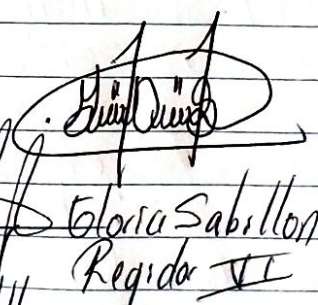 Gloria Sabillon
Regidor VI